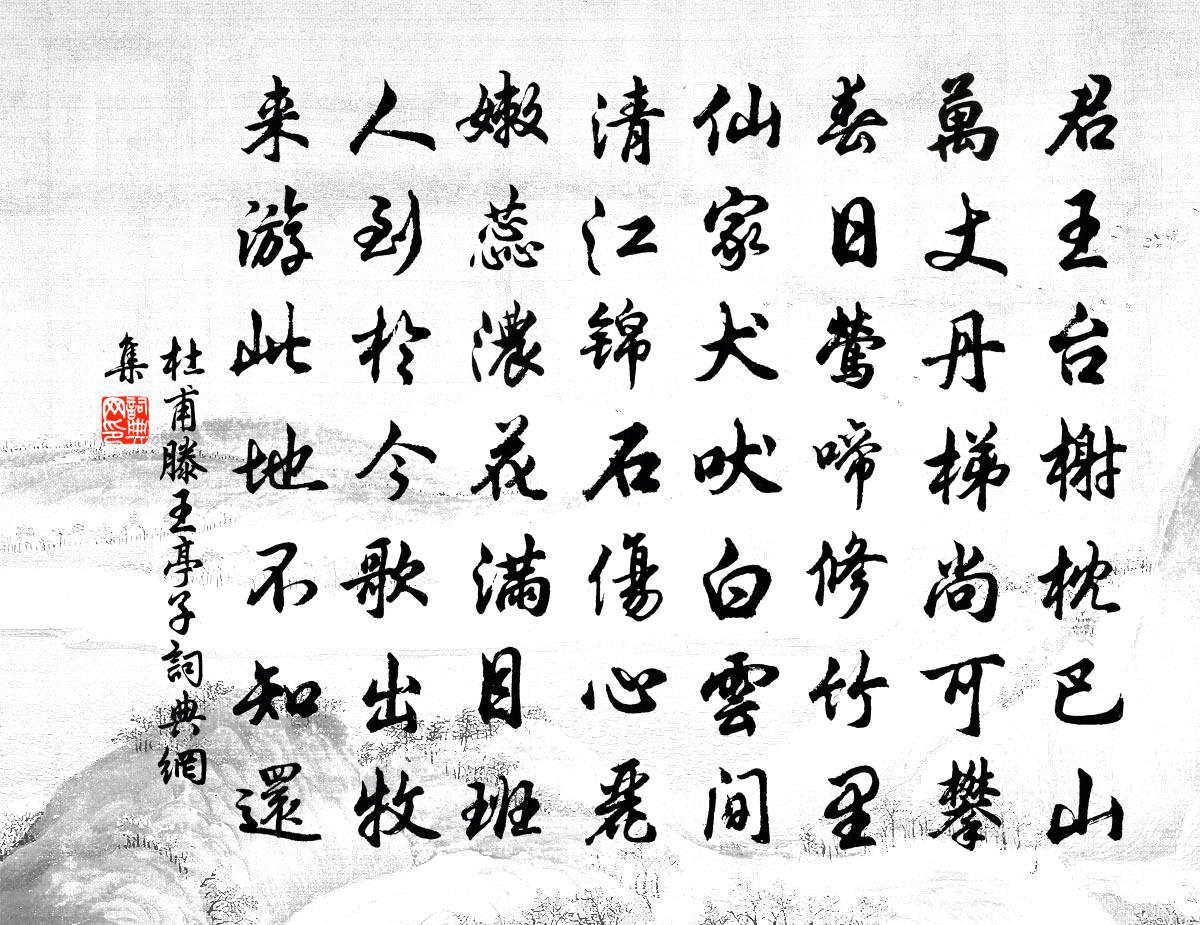 君王台榭枕巴山
萬丈丹梯尚可攀
春日鶯啼修竹里
仙家犬吠白雲間
清江锦石傷心麗
嫩蕊濃花满目班
人到於今歌出牧
来游此地不知還
杜甫滕王亭子詞典網
集
詞典
网印